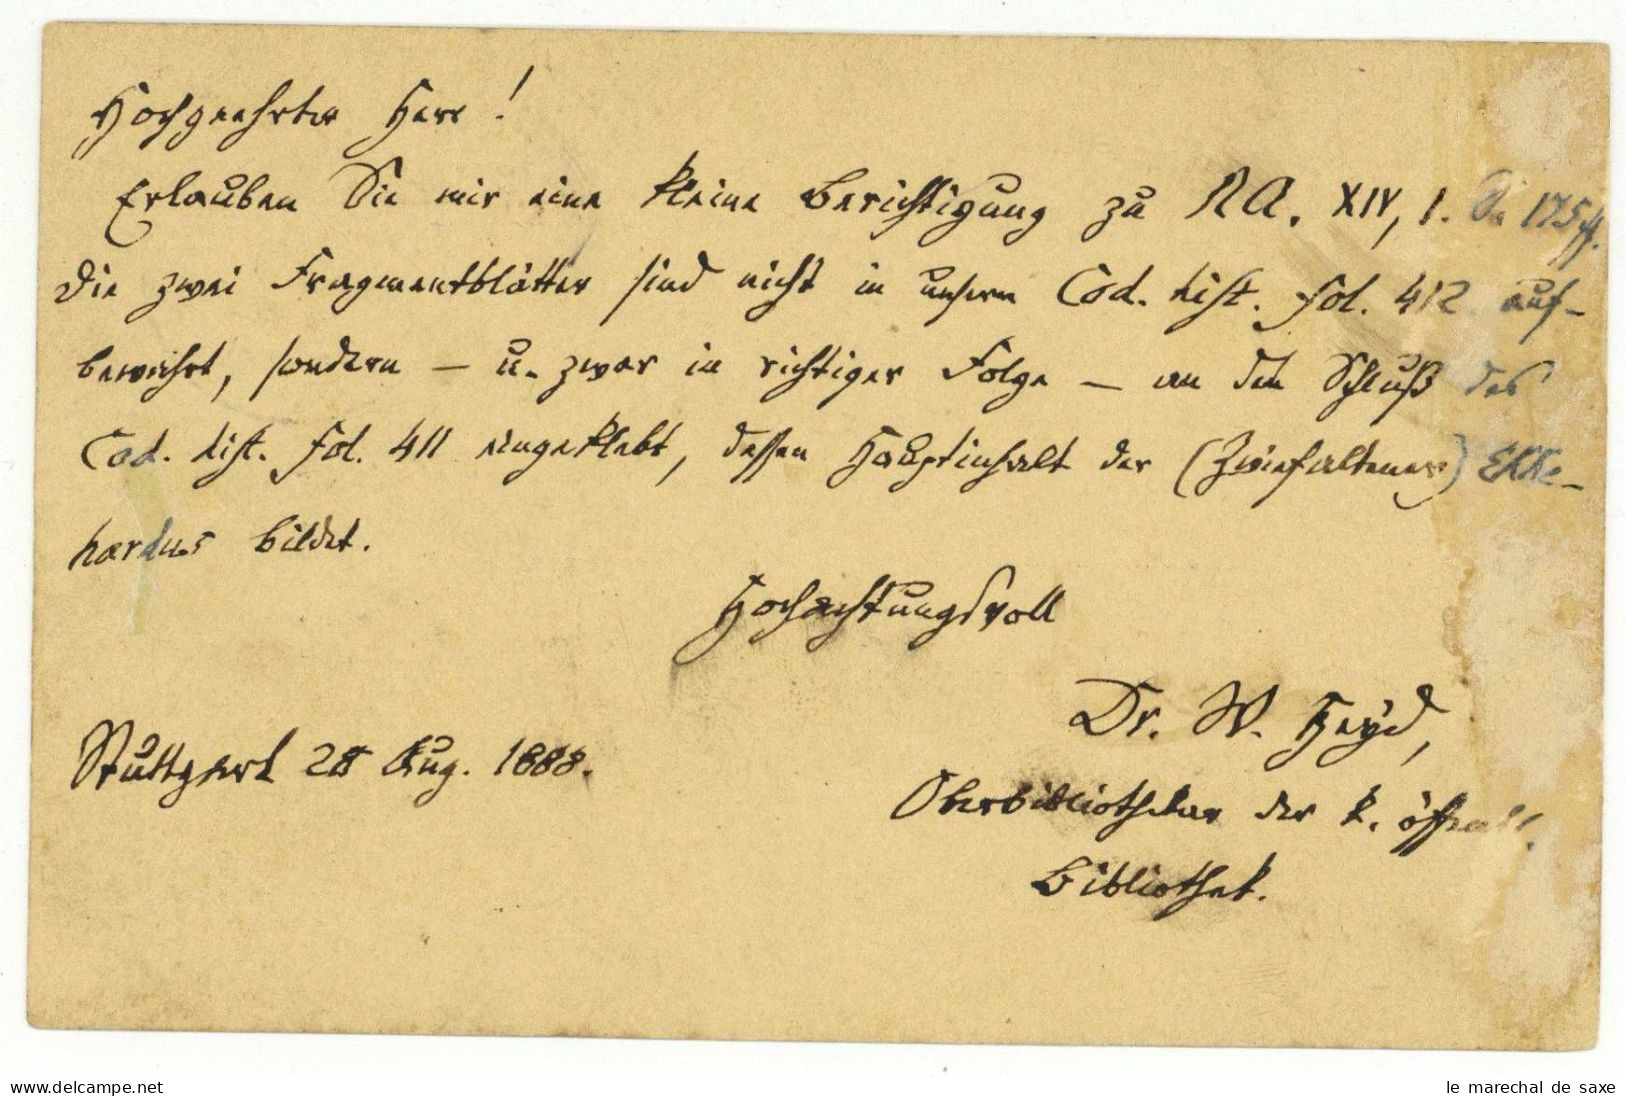 Hochgeehrter Herr!
Erlauben Sie mir eine kleine Berichtigung zu NA. XIV, 1. S. 175 ff.
Die zwei Fragmentblätter sind nicht in unserm Cod. hist. fol. 412 auf-
bewahrt, sondern – u. zwar in richtiger Folge – an den Schluß des
Cod. hist. fol. 411 eingeklebt, dessen Hauptinhalt der (Zwiefaltener) Ekke-
hardus bildet.
Hochachtungsvoll
Dr. W. Heyd,
Stuttgart 28 Aug. 1888.
Oberbibliothekar der k. öffentl.
Bibliothek.
www.delcampe.net
le marechal de saxe